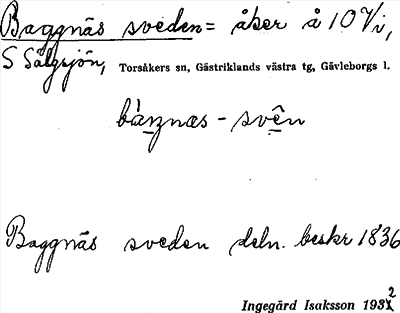 Baggnäs sveden = åker å 10 V i,
S Sälgsjön, Torsåkers sn, Gästriklands västra tg, Gävleborgs l.
bàŋnæs - svên
Baggnäs sveden deln. beskr 1836
Ingegärd Isaksson 1932